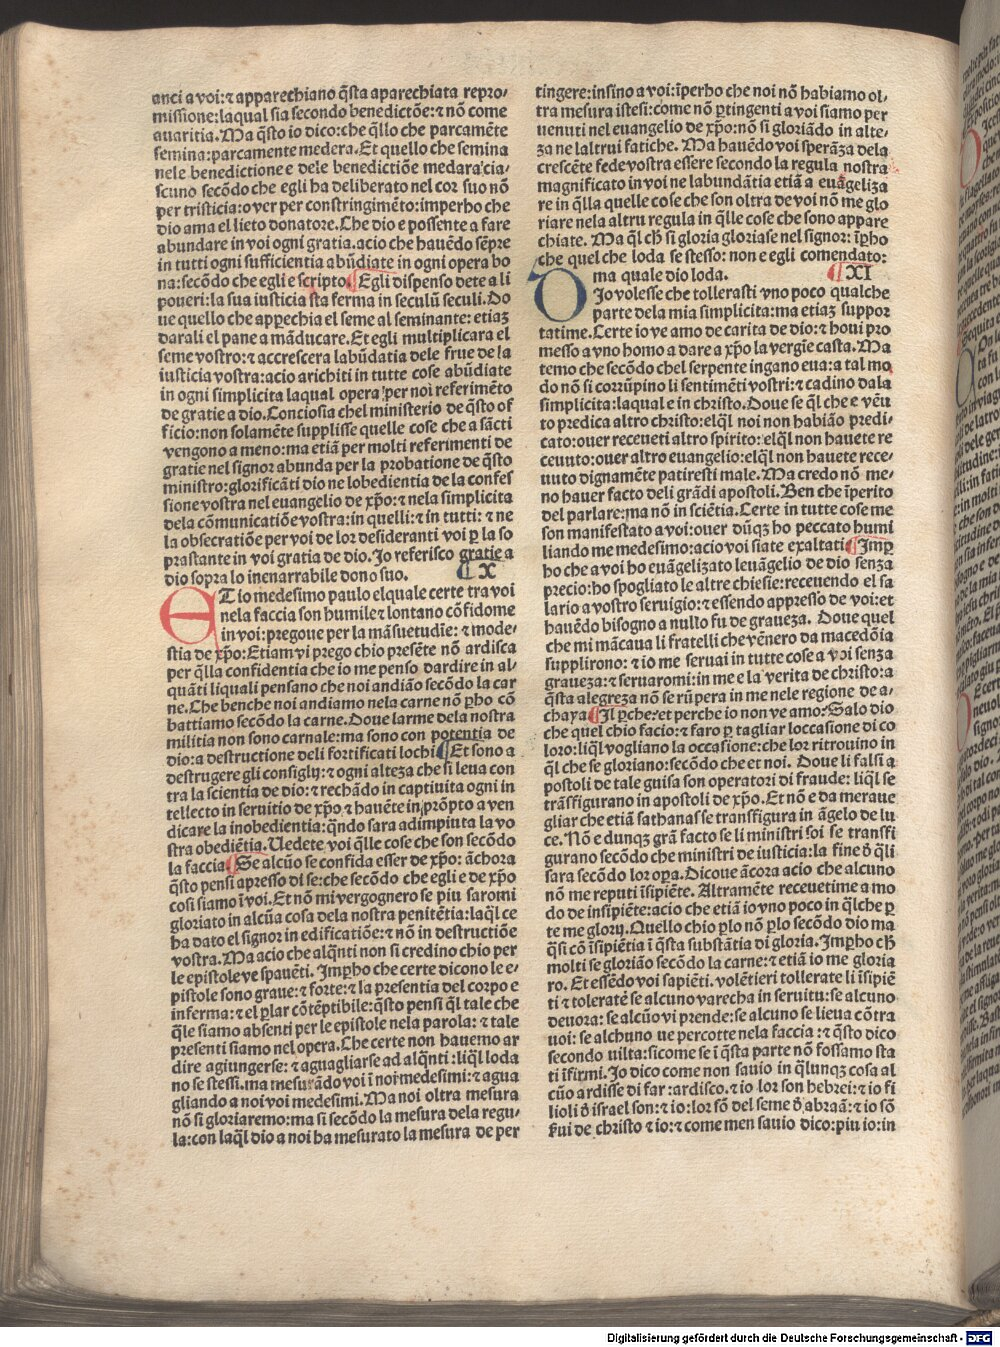 anci a voi:⁊ apparechiano q̃sta aparechiata repro-
missione:laqual sia secondo benedictõe:⁊ nõ come
auaritia. Ma q̃sto io dico:che q̃llo che parcamẽte
semina:parcamente medera. Et quello che semina
nele benedictione e dele benedictiõe medara:cia-
scuno secõdo che egli ha deliberato nel cor suo nõ
per tristicia:o ver per constringimẽto:imperho che
dio ama el lieto donatore. Che dio e possente a fare
abundare in voi ogni gratia.acio che hauẽdo sẽpre
in tutti ogni sufficientia abũdiate in ogni opera bo
na:secõdo che egli e scripto. Egli dispenso dete a li
poueri:la sua iusticia sta ferma in seculũ seculi. Do
ue quello che app̱echia el seme al seminante: etiaz
darali el pane a mãducare. Et egli multiplicara el
seme vostro:⁊ accrescera labũdatia dele frue de la
iusticia vostra:acio arichiti in tutte cose abũdiate
in ogni simplicita laqual opera per noi referimẽto
de gratie a dio. Conciosia chel ministerio de q̃sto of
ficio:non solamẽte supplisse quelle cose che a sãcti
vengono a meno:ma etiã per molti referimenti de
gratie nel signor abunda per la probatione de q̃sto
ministro:glorificãti dio ne lobedientia de la confes
sione vostra nel euangelio de xp̃o:⁊ nela simplicita
dela cõmunicatiõe vostra:in quelli:⁊ in tutti: ⁊ ne
la obsecratiõe per voi de lor desideranti voi p̱ la so
prastante in voi gratia de dio. Jo referisco gratie a
dio sopra lo inenarrabile dono suo. X
ET io medesimo paulo elquale certe tra voi
nela faccia son humile:⁊ lontano cõfidome
in voi:pregoue per la mãsuetudie: ⁊ mode-
stia de xp̃o:Etiam vi prego chio presẽte nõ ardisca
per q̃lla confidentia che io me penso dardire in al-
quãti liquali pensano che noi andião secõdo la car
ne. Che benche noi andiamo nela carne nõ p̱ho cõ
battiamo secõdo la carne. Doue larme dela nostra
militia non sono carnale:ma sono con potentia de
dio:a destructione deli fortificati lochi Et sono a
destrugere gli consiglij:⁊ ogni alteza che si leua con
tra la scientia de dio:⁊ rechãdo in captiuita ogni in
tellecto in seruitio de xp̃o:⁊ hauẽte in prõpto a ven
dicare la inobedientia:q̃ndo sara adimpiuta la vo
stra obediẽtia. Uedete voi q̃lle cose che son secõdo
la faccia Se alcũo se confida esser de xp̃o: ãchora
q̃sto pensi apresso di se:che secõdo che egli e de xp̃o
cosi siamo ĩ voi. Et nõ mi vergognero se piu saromi
gloriato in alcũa cosa dela nostra penitẽtia:laq̃l ce
ha dato el signor in edificatiõe:⁊ nõ in destructiõe
vostra. Ma acio che alq̃nti non si credino chio per
le epistole ve spauẽti. Imp̱ho che certe dicono le e-
pistole sono graue:⁊ forte:⁊ la presentia del corpo e
inferma:⁊ el p̱lar cõtẽptibile:q̃sto pensi q̃l tale che
q̃le siamo absenti per le epistole nela parola: ⁊ tale
presenti siamo nel opera. Che certe non hauemo ar
dire agiungerse: ⁊ aguagliarse ad alq̃nti :liq̃l loda
no se stessi.ma mesurãdo voi ĩ noi medesimi:⁊ agua
gliando a noi voi medesimi. Ma noi oltra mesura
nõ si gloriaremo:ma si secõdo la mesura dela regu-
la:con laq̃l dio a noi ha mesurato la mesura de per
tingere:insino a voi:ĩperho che noi nõ habiamo ol-
tra mesura istesi:come nõ p̱tingenti a voi siamo per
uenuti nel euangelio de xp̃o:nõ si gloriãdo in alte-
za ne laltrui fatiche. Ma hauẽdo voi sperãza dela
crescẽte fede vostra essere secondo la regula nostra
magnificato in voi ne labundãtia etiã a euãgeliza
re in q̃lla quelle cose che son oltra de voi nõ me glo
riare nela altru regula in q̃lle cose che sono appare
chiate. Ma q̃l ch̃ si gloria gloriase nel signor: ĩp̱ho
che quel che loda se stesso: non e egli comendato:
ma quale dio loda. XI
OJo volesse che tollerasti vno poco qualche
parte dela mia simplicita:ma etiaz suppor
tatime. Certe io ve amo de carita de dio:⁊ houi pro
messo a vno homo a dare a xp̃o la vergĩe casta. Ma
temo che secõdo chel serpente ingano eua:a tal mo
do nõ si corrũpino li sentimẽti vostri:⁊ cadino dala
simplicita:laqual e in christo. Doue se q̃l che e vẽu
to predica altro christo:elq̃l noi non habião predi-
cato:ouer receueti altro spirito:elq̃l non hauete re
ceuuto:ouer altro euangelio:elq̃l non hauete rece-
uuto dignamẽte patiresti male. Ma credo nõ me-
no hauer facto deli grãdi apostoli. Ben che ĩperito
del parlare:ma nõ in sciẽtia. Certe in tutte cose me
son manifestato a voi:ouer dũqz ho peccato humi
liando me medesimo:acio voi siate exaltati Imp̱
ho che a voi ho euãgelizato leuãgelio de dio senza
precio:ho spogliato le altre chiesie:receuendo el sa
lario a vostro seruigio:⁊ essendo appresso de voi:et
hauẽdo bisogno a nullo fu de graueza. Doue quel
che mi mãcaua li fratelli che vẽnero da macedõia
supplirono: ⁊ io me seruai in tutte cose a voi senza
graueza:⁊ seruaromi:in me e la verita de christo:a
q̃sta alegreza nõ se rũpera in me nele regione de a-
chaya Il p̱che:et perche io non ve amo:Salo dio
che quel chio facio:⁊ faro p̱ tagliar loccasione di co
loro:liq̃l vogliano la occasione:che lor ritrouino in
q̃l che se gloriano:secõdo che et noi. Doue li falsi a
postoli de tale guisa son operatori di fraude: liq̃l se
trãsfigurano in apostoli de xp̃o. Et nõ e da meraue
gliar che etiã sathanas se transfigura in ãgelo de lu
ce. Nõ e dunqz grã facto se li ministri soi se transfi
gurano secõdo che ministri de iusticia:la fine đ q̃li
sara secõdo lor op̱a. Dicoue ãcora acio che alcuno
nõ me reputi ĩsipiẽte. Altramẽte receuetime a mo
do de insipiẽte:acio che etiã io vno poco in q̃lche p̱
te me glorij. Quello chio p̱lo nõ p̱lo secõdo dio ma
q̃si cõ ĩsipiẽtia ĩ q̃sta substãtia di gloria. Imp̱ho ch̃
molti se glorião secõdo la carne:⁊ etiã io me gloria
ro. Et essẽdo voi sapiẽti. volẽtieri tollerate li ĩsipiẽ
ti ⁊ tolerate se alcuno varecha in seruitu:se alcuno
deuora: se alcũo vi prende:se alcuno se lieua cõtra
uoi: se alchuno ue percotte nela faccia :⁊ q̃sto dico
secondo uilta:sicome se ĩ q̃sta parte nõ fossamo sta
ti ĩfirmi. Jo dico come non sauio in q̃lunqz cosa al
cũo ardisse di far :ardisco.⁊ io lor son hebrei:⁊ io fi
lioli đ israel son:⁊ io:lor sõ del seme đ abraã:⁊ io sõ
ẜui de christo ⁊ io:⁊ come men sauio dico:piu io:in
Digitalisierung gefördert durch die Deutsche Forschungsgemeinschaft - DFG